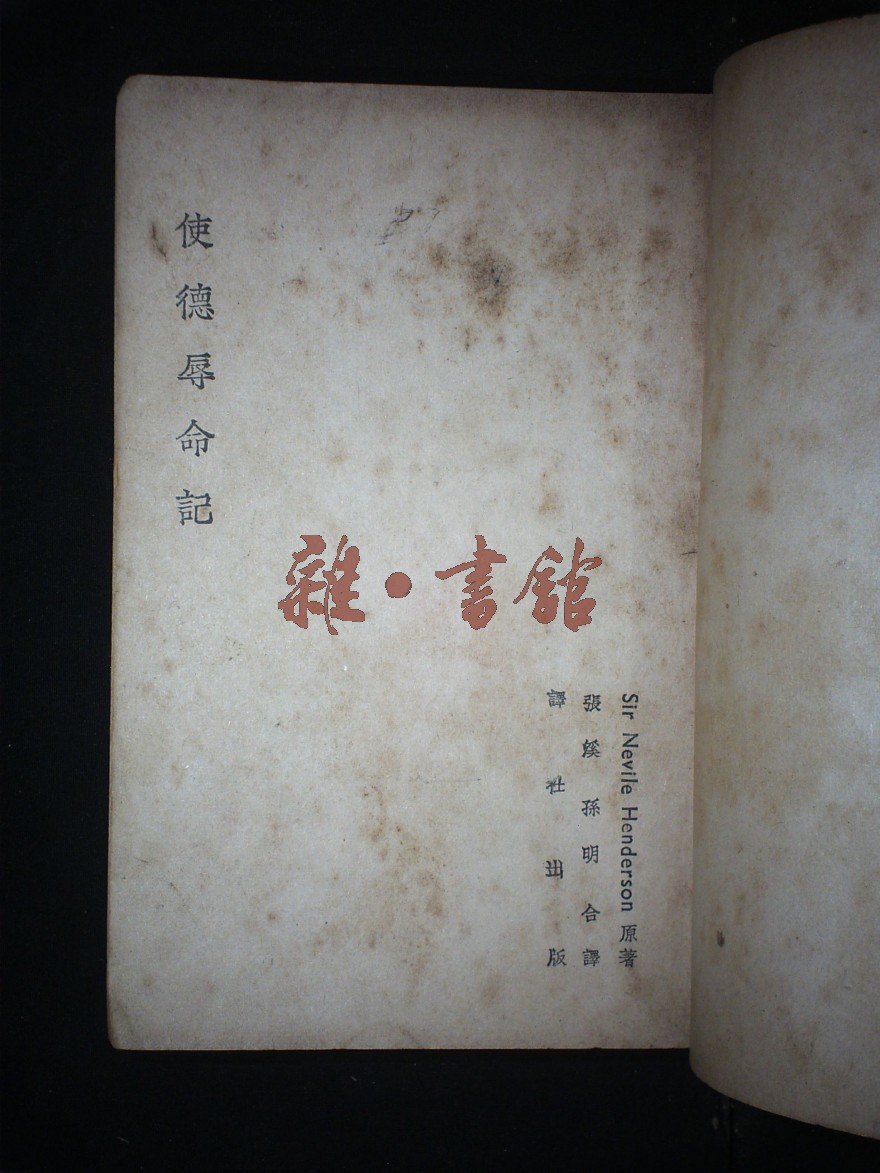 使德辱命記
雜·書館
Sir Nevile Henderson 原著
張溪孫明合譯
譯社出版